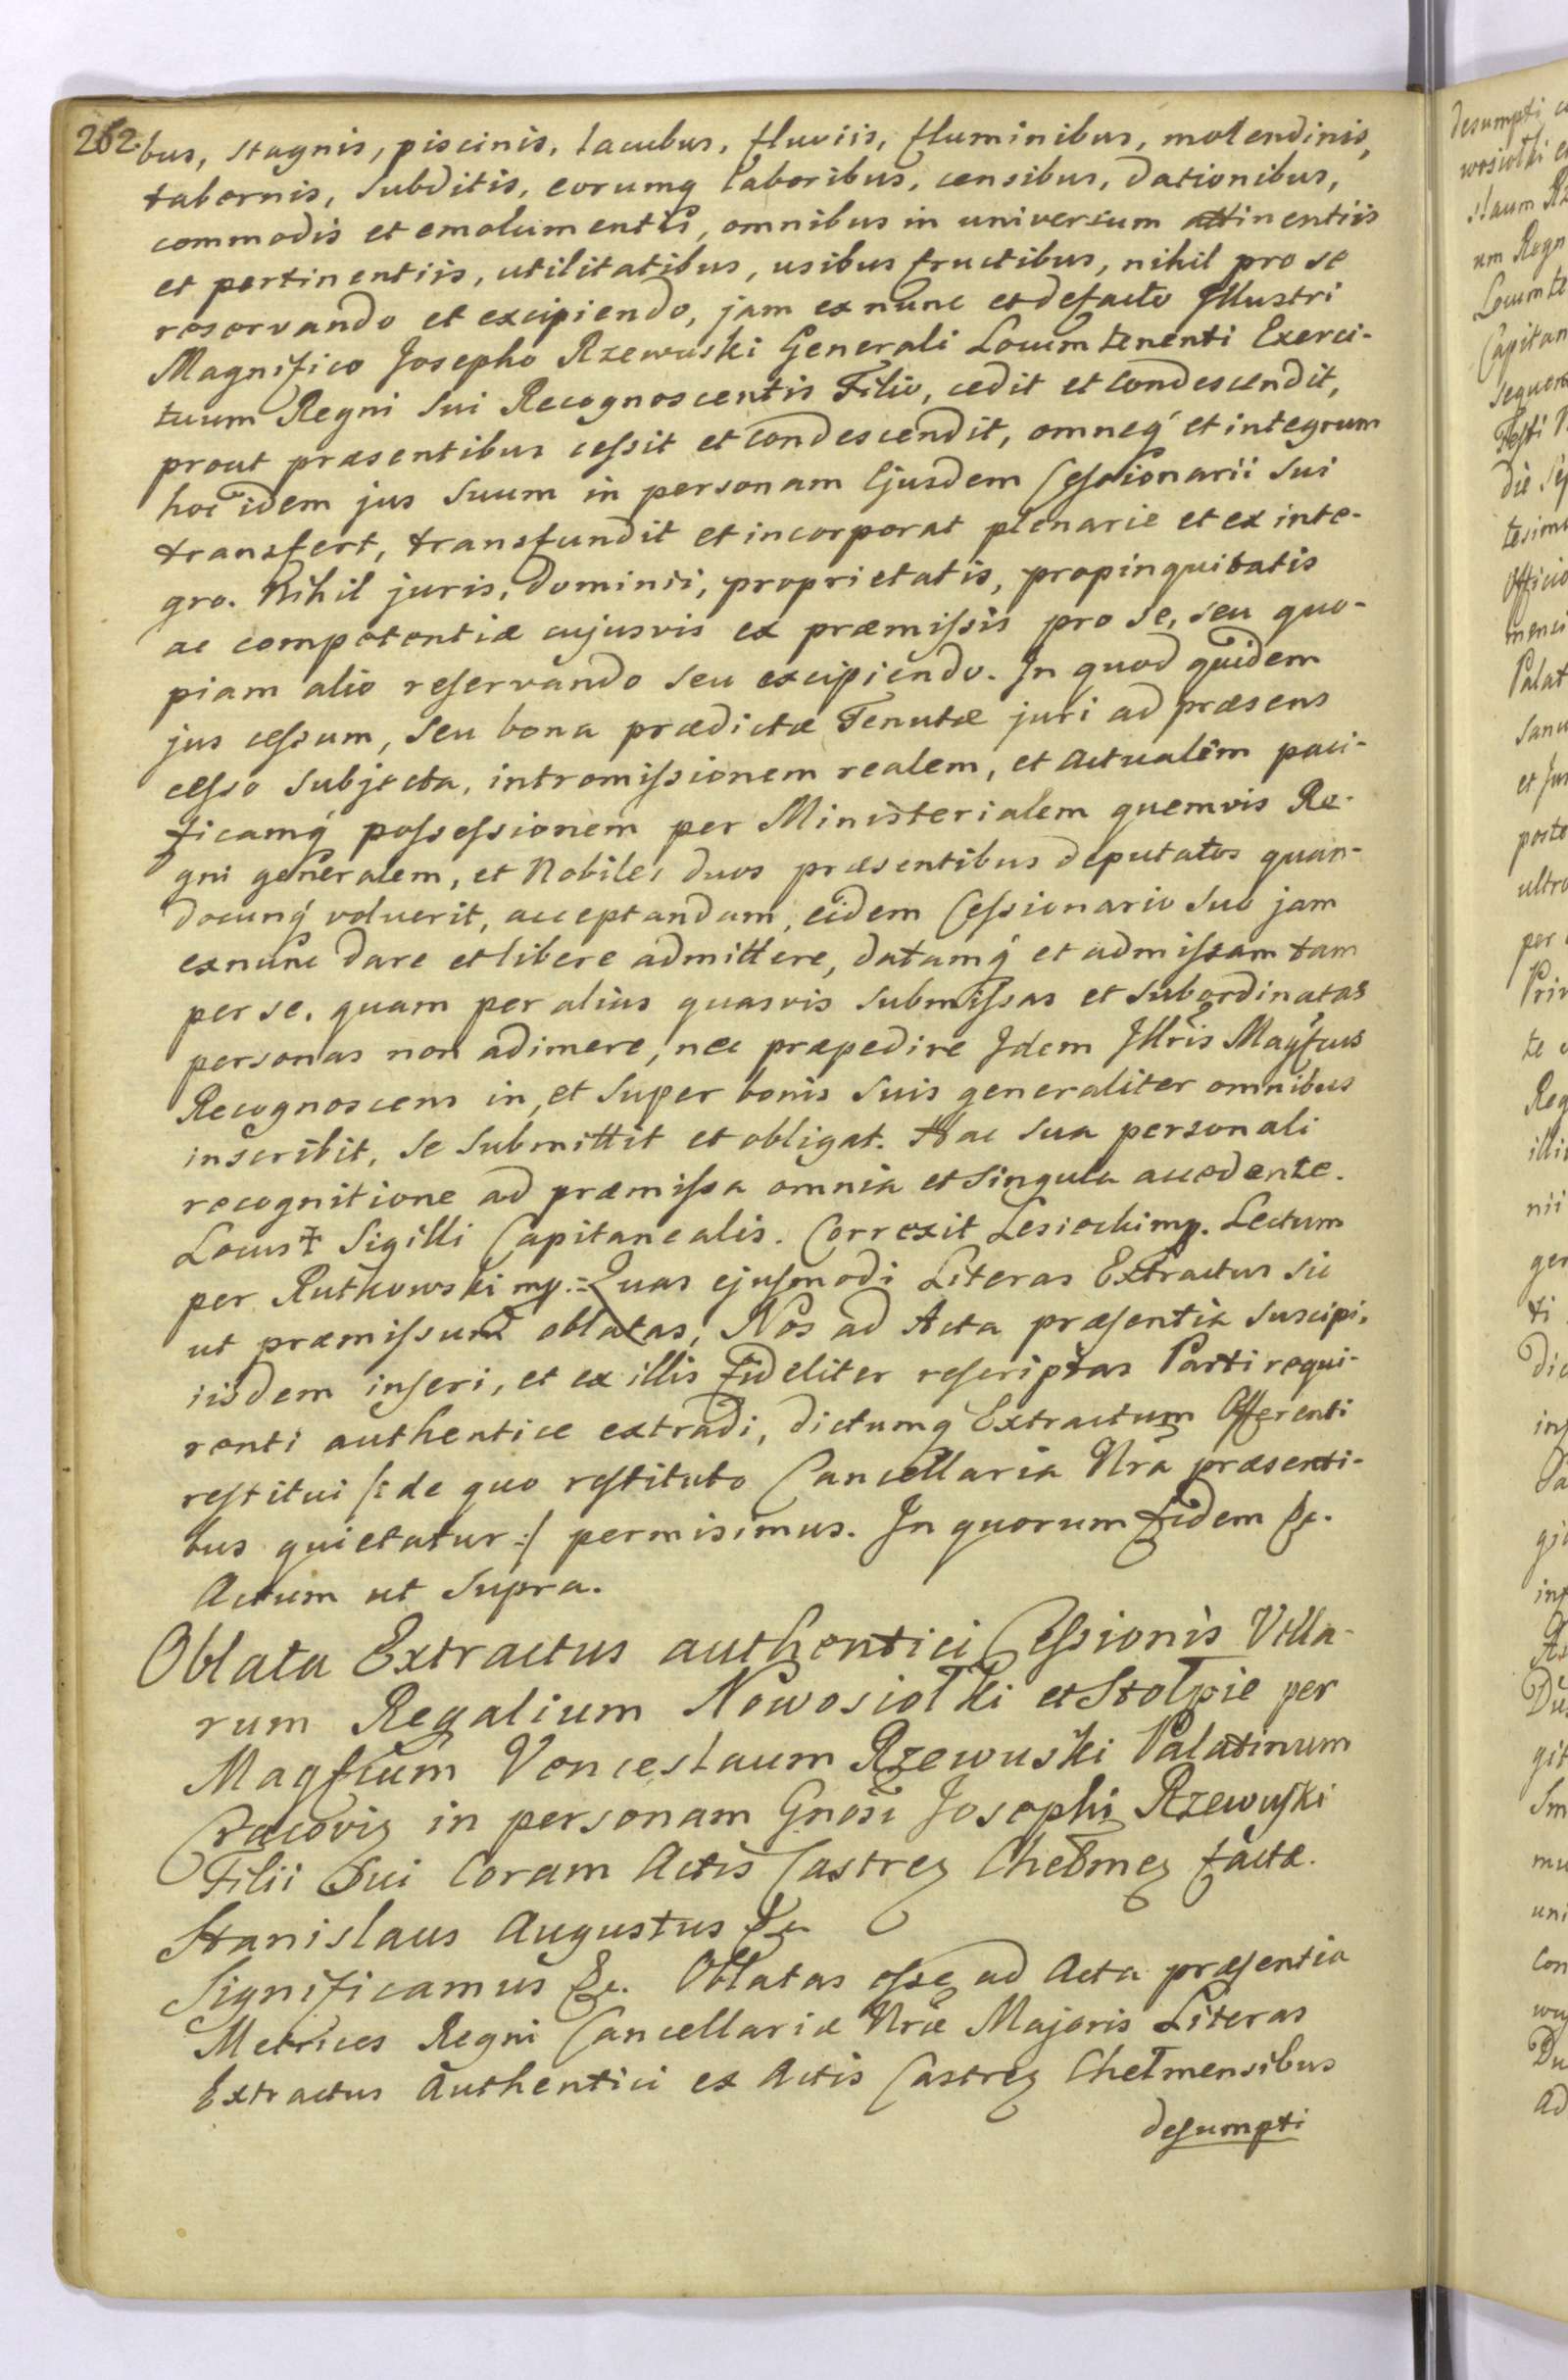 262.
bus, stagnis, piscinis, lacubus, fluviis, fluminibus, molendinis,
tabernis, subditis, eorumq laboribus, censibus, dationibus,
commodis et emolumentis, omnibus in universum attinentiis
et pertinentiis, utilitatibus, usibus fructibus, nihil pro se
reservando et excipiendo, jam ex nunc et defacto Illustri
Magnifico Josepho Rzewuski Generali Locumtenenti Exerci-
tuum Regni sui Recognoscentis Filio, cedit et condescendit,
prout præsentibus cessit et condescendit, omneq́ et integrum
hoc idem jus suum in personam Ejusdem Cessionarii sui
transfert, transfundit et incorporat plenarie et ex inte-
gro. Nihil juris, dominii, proprietatis, propinquitatis
ac competentiæ cujusvis ex præmissis pro se, seu quo-
piam alio reservando seu excipiendo. In quod quidem
jus cessum, seu bona prædictæ Tenutæ juri ad præsens
cesso subjecta, intromissionem realem, et actualem paci-
ficamq́ possessionem per Ministerialem quemvis Re-
gni generalem, et Nobiles duos præsentibus deputatos quan-
docunq́ voluerit, acceptandam, eidem Cessionario suo jam
exnunc dare et libere admittere, datamq́ et admissam tam
per se, quam per alias quasvis submissas et subordinatas
personas non adimere, nec præpedire Idem Illris Magfcus
Recognoscens in, et super bonis suis generaliter omnibus
inscribit, se submittit et obligat. Hac sua personali
recognitione ad præmissa omnia et singula accedente.
Locus ‡ Sigilli Capitanealis. Correxit Lesiecki mp. Lectum
per Rutkowski mp.= Quas ejusmodi Literas Extractus sic
ut præmissum oblatas, Nos ad Acta præsentia suscipi,
iisdem inseri, et ex illis fideliter rescriptas Parti requi-
renti authentice extradi, dictumq Extractum Offerenti
restitui /: de quo restituto Cancellaria Nra præsenti-
bus quietatur :/ permisimus. In quorum fidem &c.
Actum ut supra.
Oblata Extractus authentici Cessionis Villa-
rum Regalium Nowosiołki et Stołpie per
Magfcum Venceslaum Rzewuski Palatinum
Cracovię in personam Gnosi Josephi Rzewuski
Filii Sui Coram Actis Castreę Chełmeę factæ.
Stanislaus Augustus &c
Significamus &c. Oblatas esse ad Acta præsentia
Metrices Regni Cancellariæ Nræ Majoris Literas
Extractus Authentici ex Actis Castreę Chełmensibus
desumpti